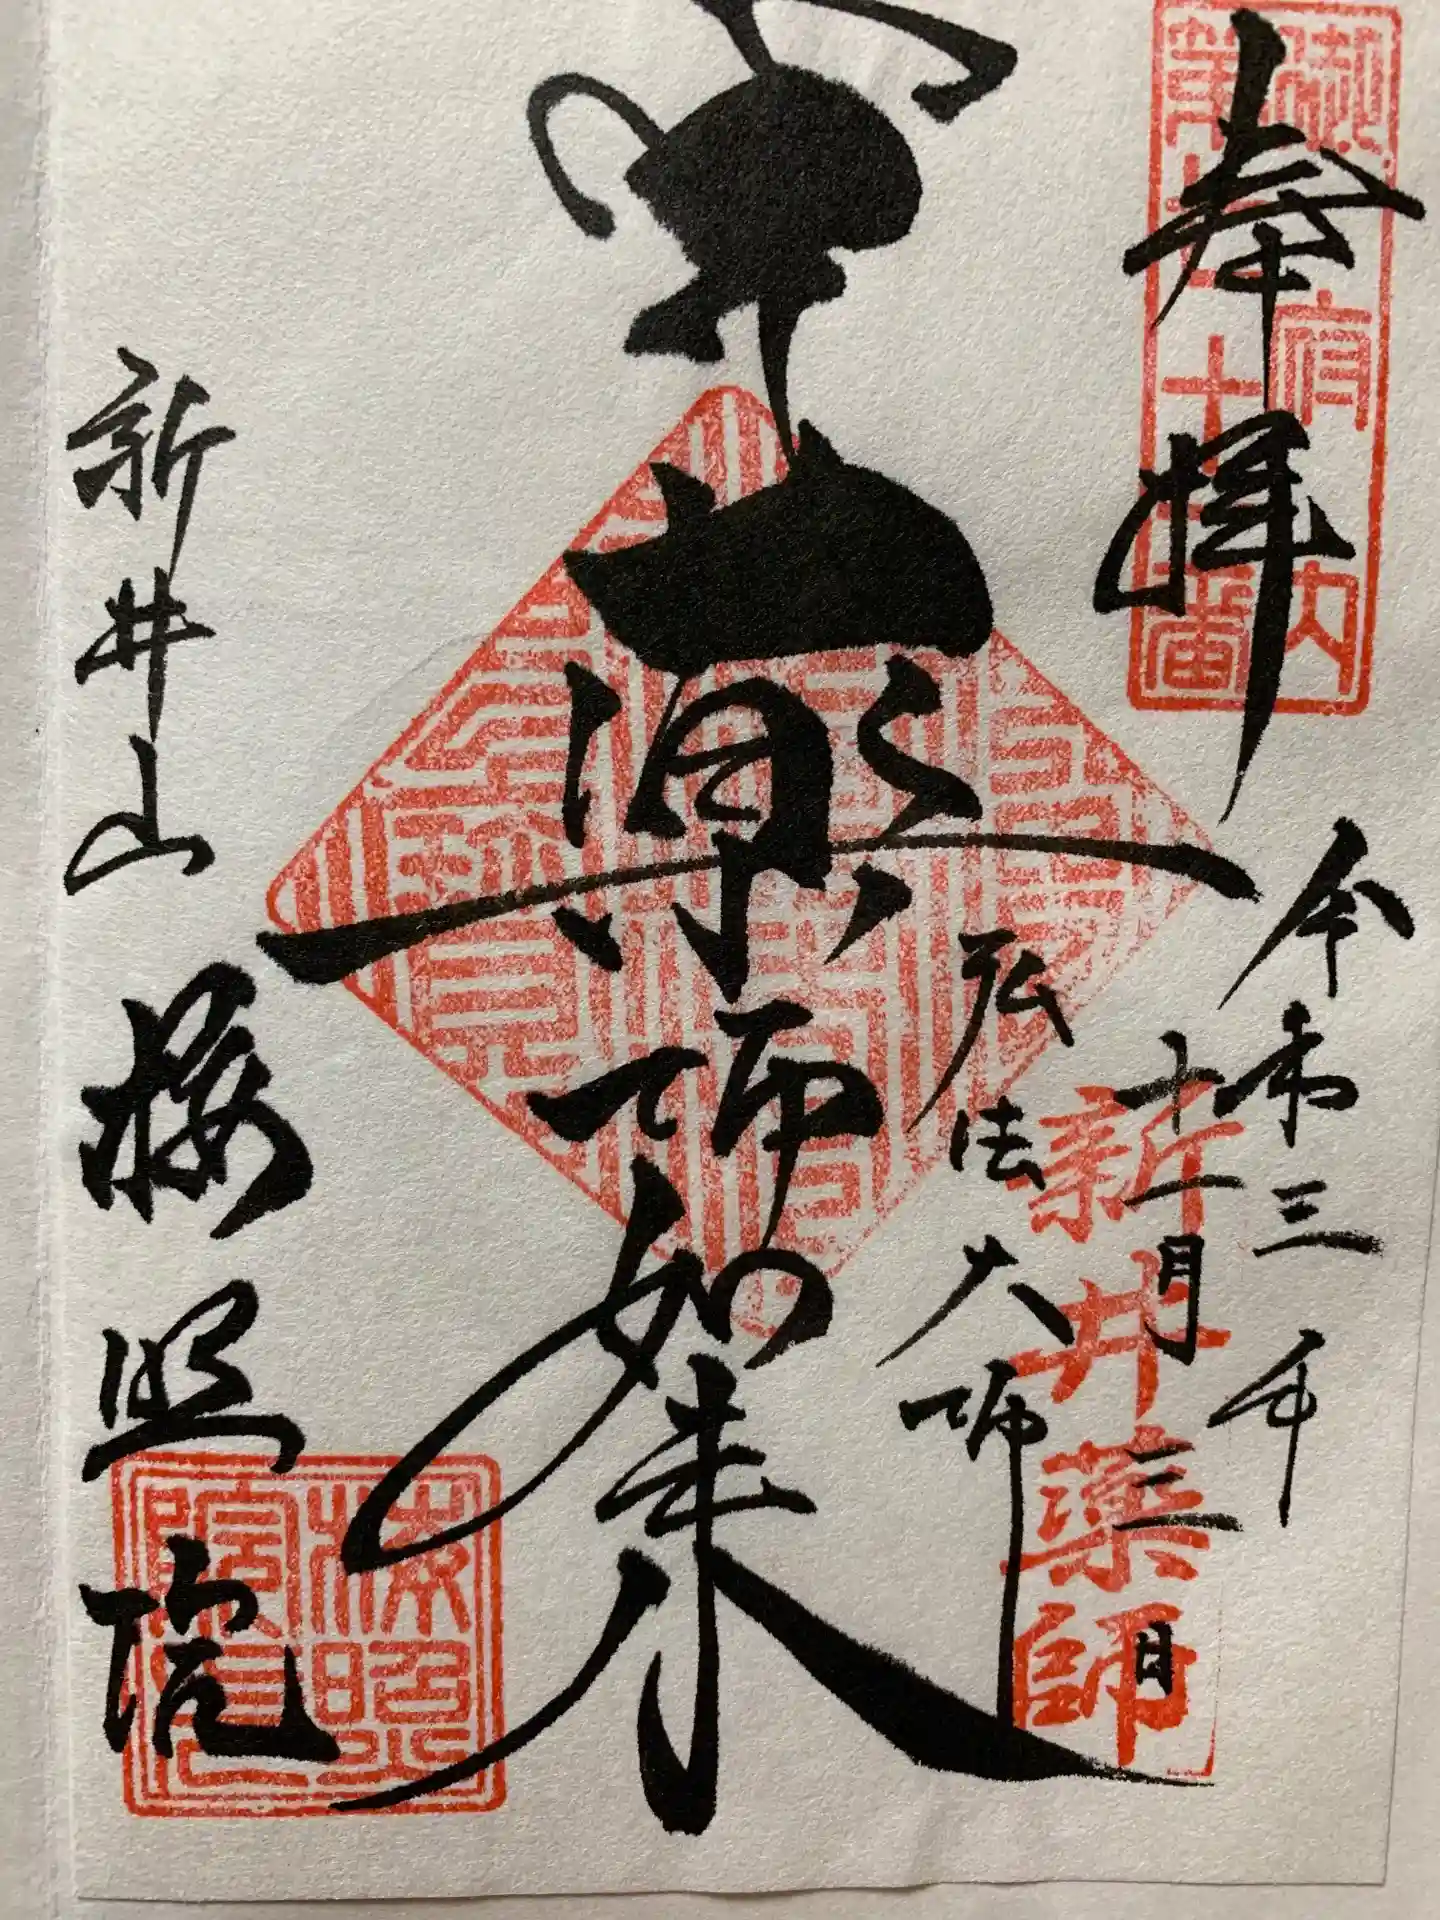 奉拝
御府内
第七十一番
令和三年
十一月三日
新井薬師
弘法大師
薬師如来
新井山
梅照院
梅照院印